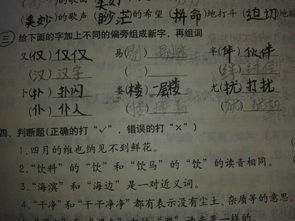 美妙的歌声 渺茫的希望 拼命地打斗 迫切
三 给下面的字加上不同的偏旁组成新字,再组词
又(仅)仅仅 易( ) 半(伴)伙伴
(汉)汉字
卜(扑)扑闪 娄(楼)一层楼 尤(扰)打扰
(仆)仆人 (优)
四、判断题(正确的打“✓”,错误的打“×”)
1.四月的维也纳见不到鲜花。
2.“饮料”的“饮”和“饮马”的“饮”的读音相同。
3.“海滨”和“海边”是一对近义词。
4.“干净”和“干干净净”都有表示没有尘土、杂质等的意思。